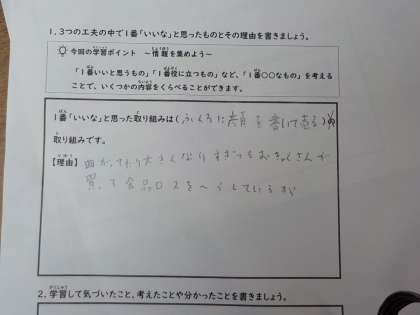 1. 3つの工夫の中で1番「いいな」と思ったものとその理由を書きましょう。
今回の学習ポイント ～情報を集めよう～
「1番いいと思うもの」「1番役に立つもの」など、「1番○○なもの」を考える
ことで、いくつかの内容をくらべることができます。
1番「いいな」と思った取り組みは(ふくろに顔を書いて売る)
取り組みです。
【理由】曲がってたり大きくなりすぎても おきゃくさんが
買って食品ロスをへらしているから
2. 学習して気づいたこと、考えたことや分かったことを書きましょう。